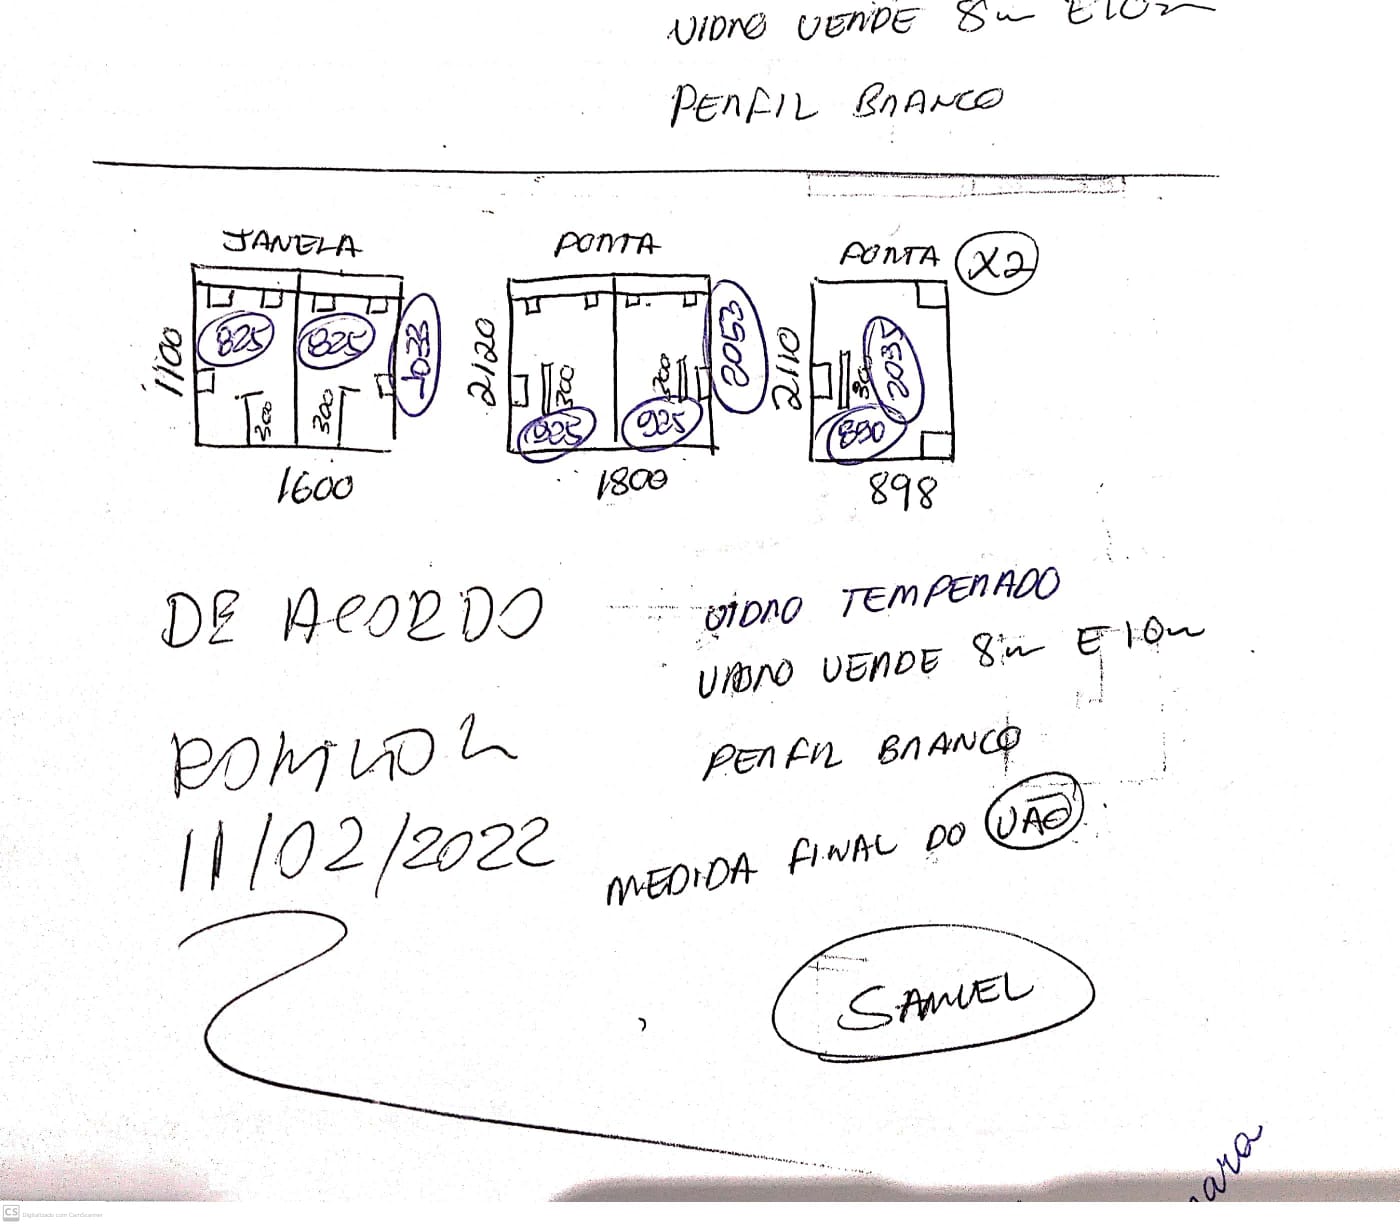 VIDRO VERDE 8m E10m
PERFIL BRANCO
JANELA
PORTA
PORTA X2
1100
825
825
1033
300
300
1600
2120
2053
300
300
925
925
1800
2110
2035
300
890
898
DE ACORDO
VIDRO TEMPERADO
VIDRO VERDE 8m E10m
PERFIL BRANCO
11/02/2022
MEDIDA FINAL DO VÃO
SAMUEL
CS Digitalizado com CamScanner